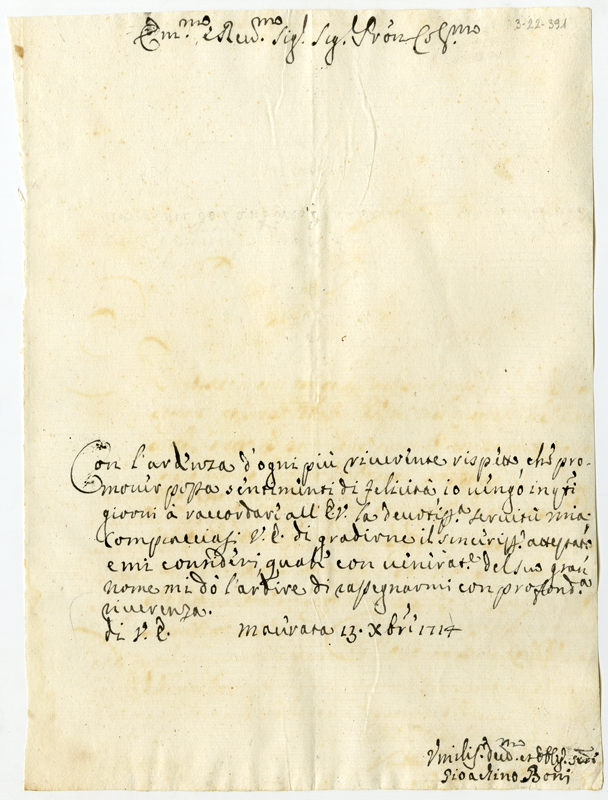 3-22-391
Em.mo e Reu.mo Sig.r Sig.r Prōn Col.mo
Con l'ardenza d'ogni più riuerente rispetto che pro-
mouer possa sentimenti di felicità io uengo in q.sti
giorni à raccordare all' E.V. la deuotiss.a seruitù mia
Compiacciasi V.E. di gradirne il sinceriss.o attestato
e mi consideri quale con uenerat.e del suo gran
nome mi dò l'ardire di rassegnarmi con profond.a
riuerenza.
di V.E. Macerata 13. Xbre 1714
Vmilis.o deu.mo et obblig. Seru.
Gioachino Boni